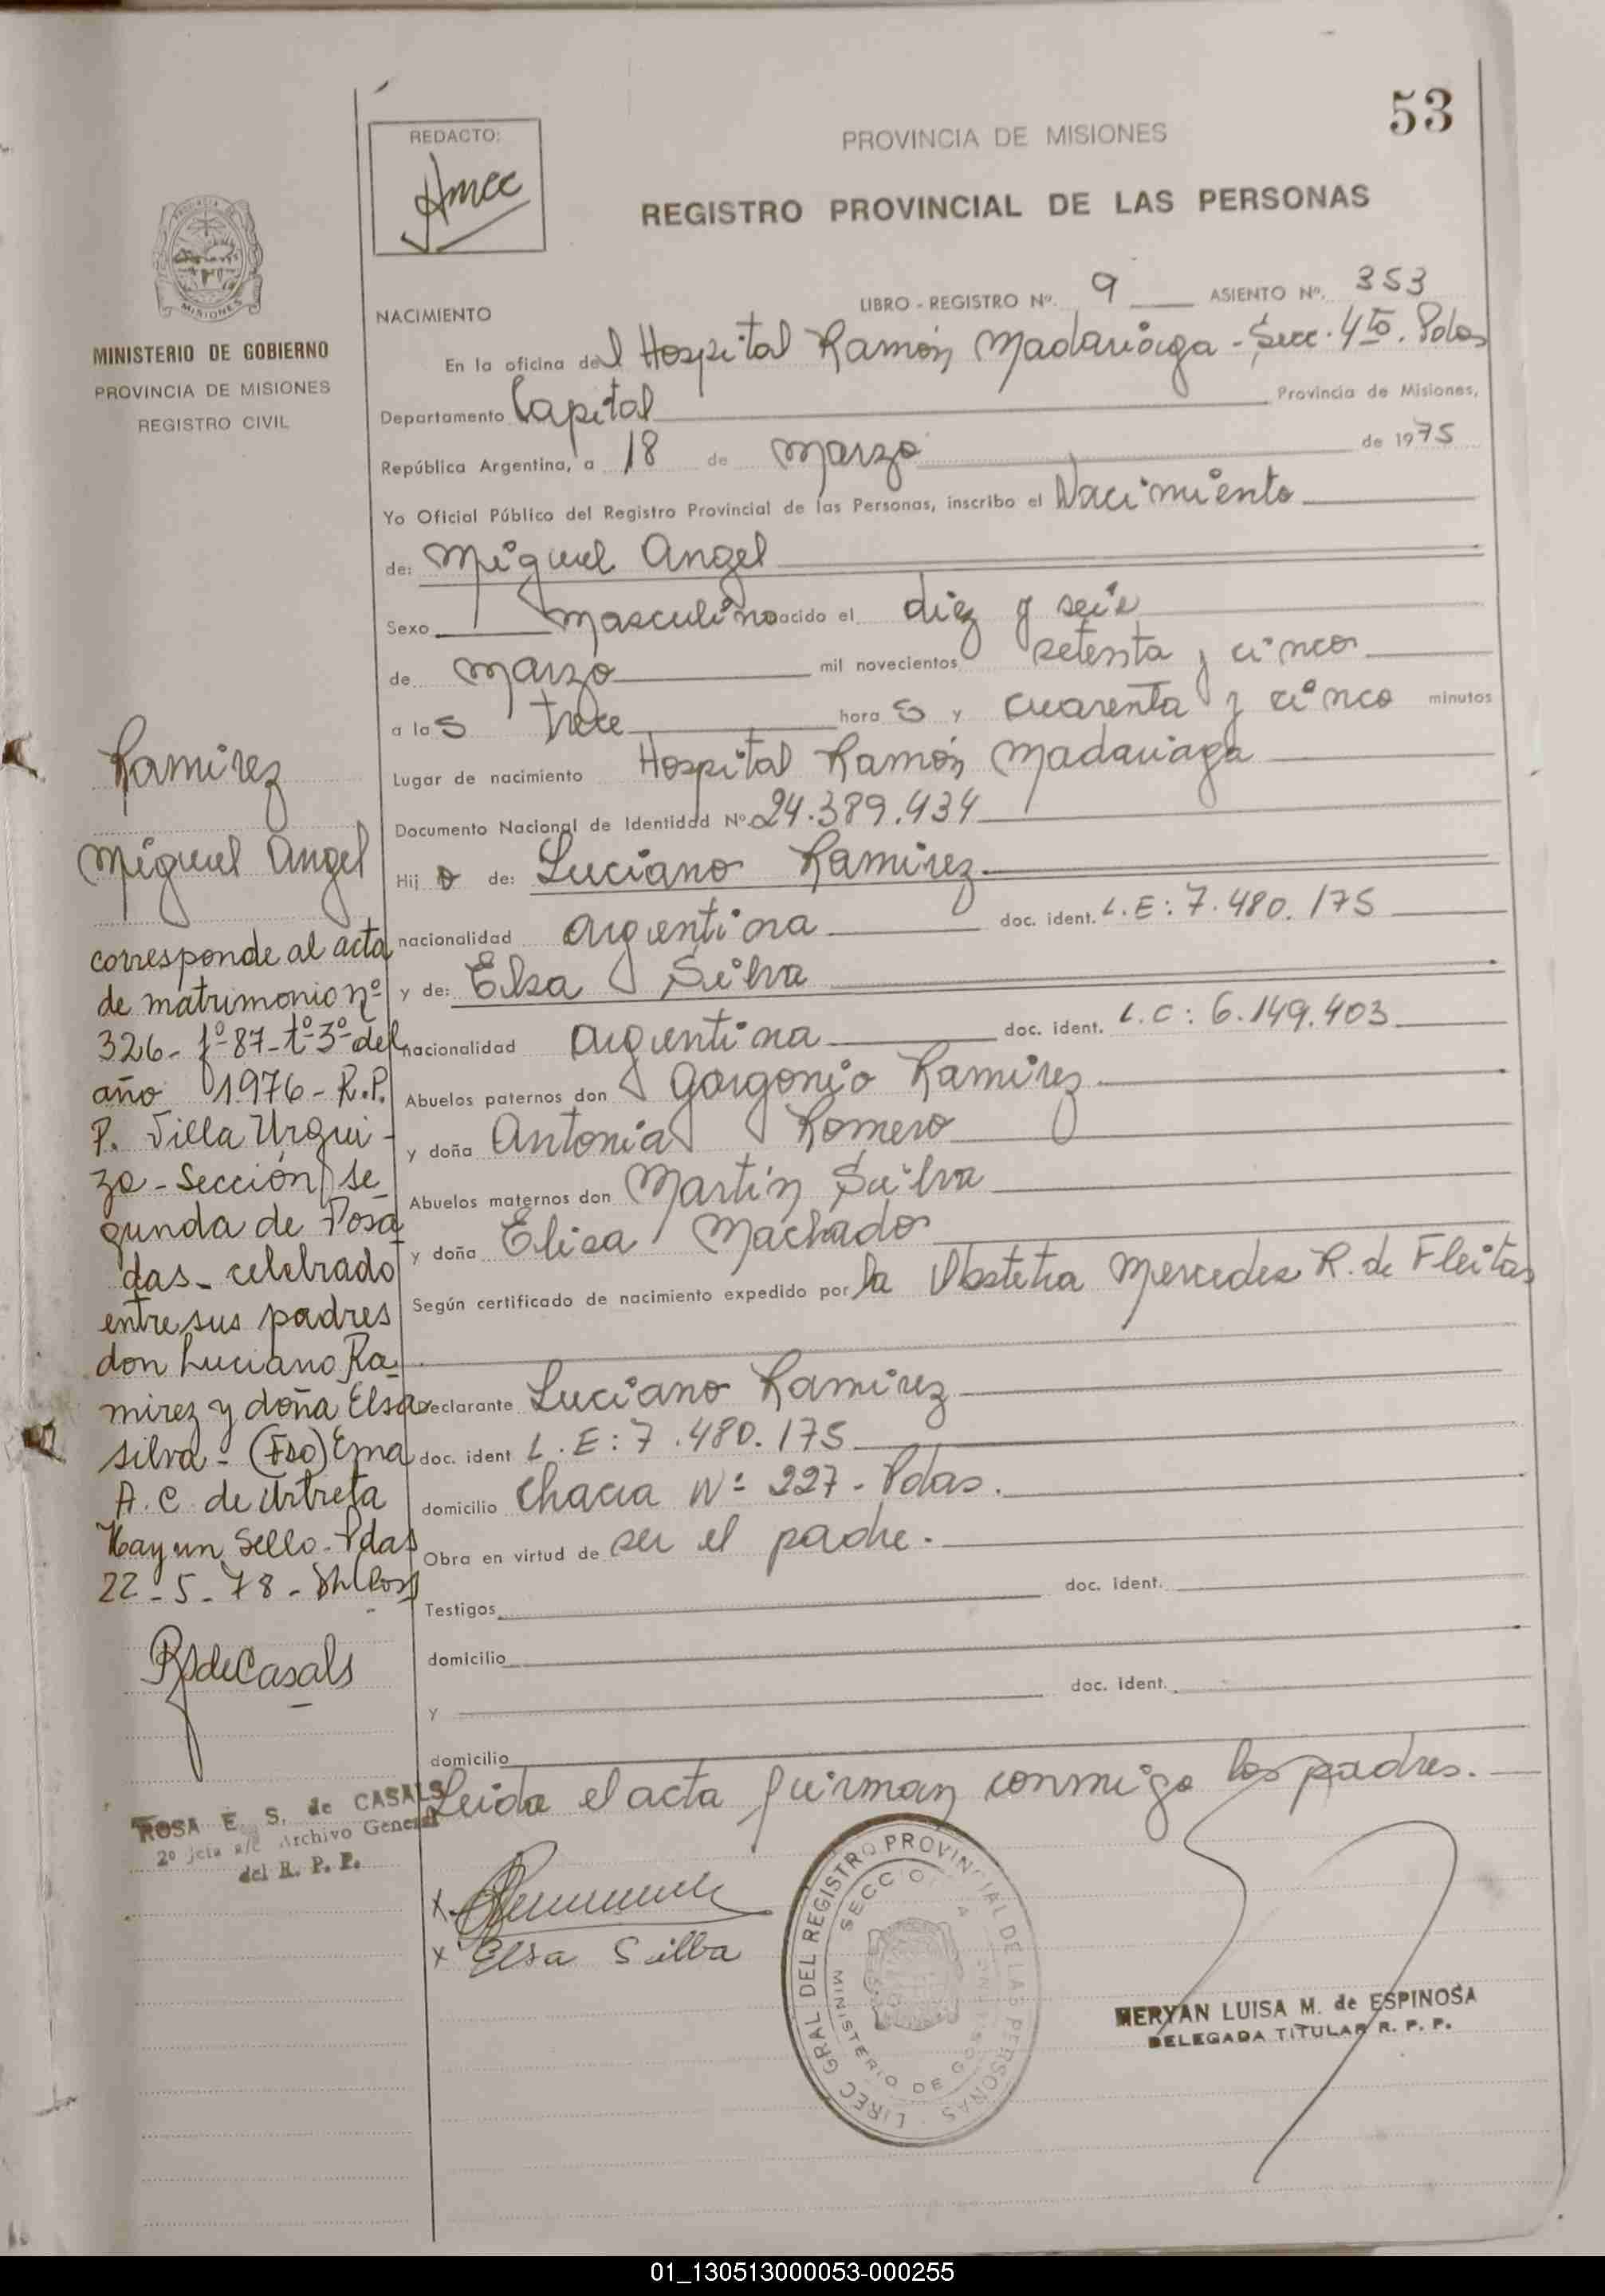 53
REDACTO:
PROVINCIA DE MISIONES
REGISTRO PROVINCIAL DE LAS PERSONAS
LIBRO - REGISTRO Nº. 9 ASIENTO Nº. 353
NACIMIENTO
MINISTERIO DE GOBIERNO
PROVINCIA DE MISIONES
REGISTRO CIVIL
En la oficina del Hospital Ramón Madariaga - Secc. 4to. Pdas
Departamento Capital Provincia de Misiones,
República Argentina, a 18 de marzo de 1975
Yo Oficial Público del Registro Provincial de las Personas, inscribo el Nacimiento
de: Miguel Angel
Sexo masculino nacido el diez y seis
de marzo mil novecientos setenta y cinco
a las trece horas y cuarenta y cinco minutos
Lugar de nacimiento Hospital Ramón Madariaga
Documento Nacional de Identidad Nº 24.389.434
Hijo de: Luciano Ramirez
nacionalidad argentina doc. ident. L.E: 7.480.175
y de: Elsa Silva
nacionalidad argentina doc. ident. L.C: 6.149.403
Abuelos paternos don Gorgonio Ramirez
y doña Antonia Romero
Abuelos maternos don Martin Silva
y doña Elisa Machado
Según certificado de nacimiento expedido por la Obstetra Mercedes R. de Fleitas
Declarante Luciano Ramirez
doc. ident L.E: 7.480.175
domicilio Chacra Nº 227 - Pdas.
Obra en virtud de ser el padre.
Testigos doc. ident.
domicilio
y doc. ident.
domicilio
Leida el acta firman conmigo los padres.
x
x Elsa Silba
Ramirez
Miguel Angel
corresponde al acta
de matrimonio nº
326- fº 87- tº 3º del
año 1976 - R.P.
P. Villa Urqui-
za - Sección se
gunda de Posa
das - celebrado
entre sus padres
don Luciano Ra
mirez y doña Elsa
Silva - (Fdo) Ema
A. C. de Urtreta
Hay un Sello - Pdas
22 - 5 - 78 -
RSdeCasals
ROSA E. S. de CASALS
2º jefa a/c Archivo General
del R. P. P.
DIREC GRAL DEL REGISTRO PROVINCIAL DE LAS PERSONAS
MINISTERIO DE GOBIERNO
MERYAN LUISA M. de ESPINOSA
DELEGADA TITULAR R. P. P.
01_130513000053-000255